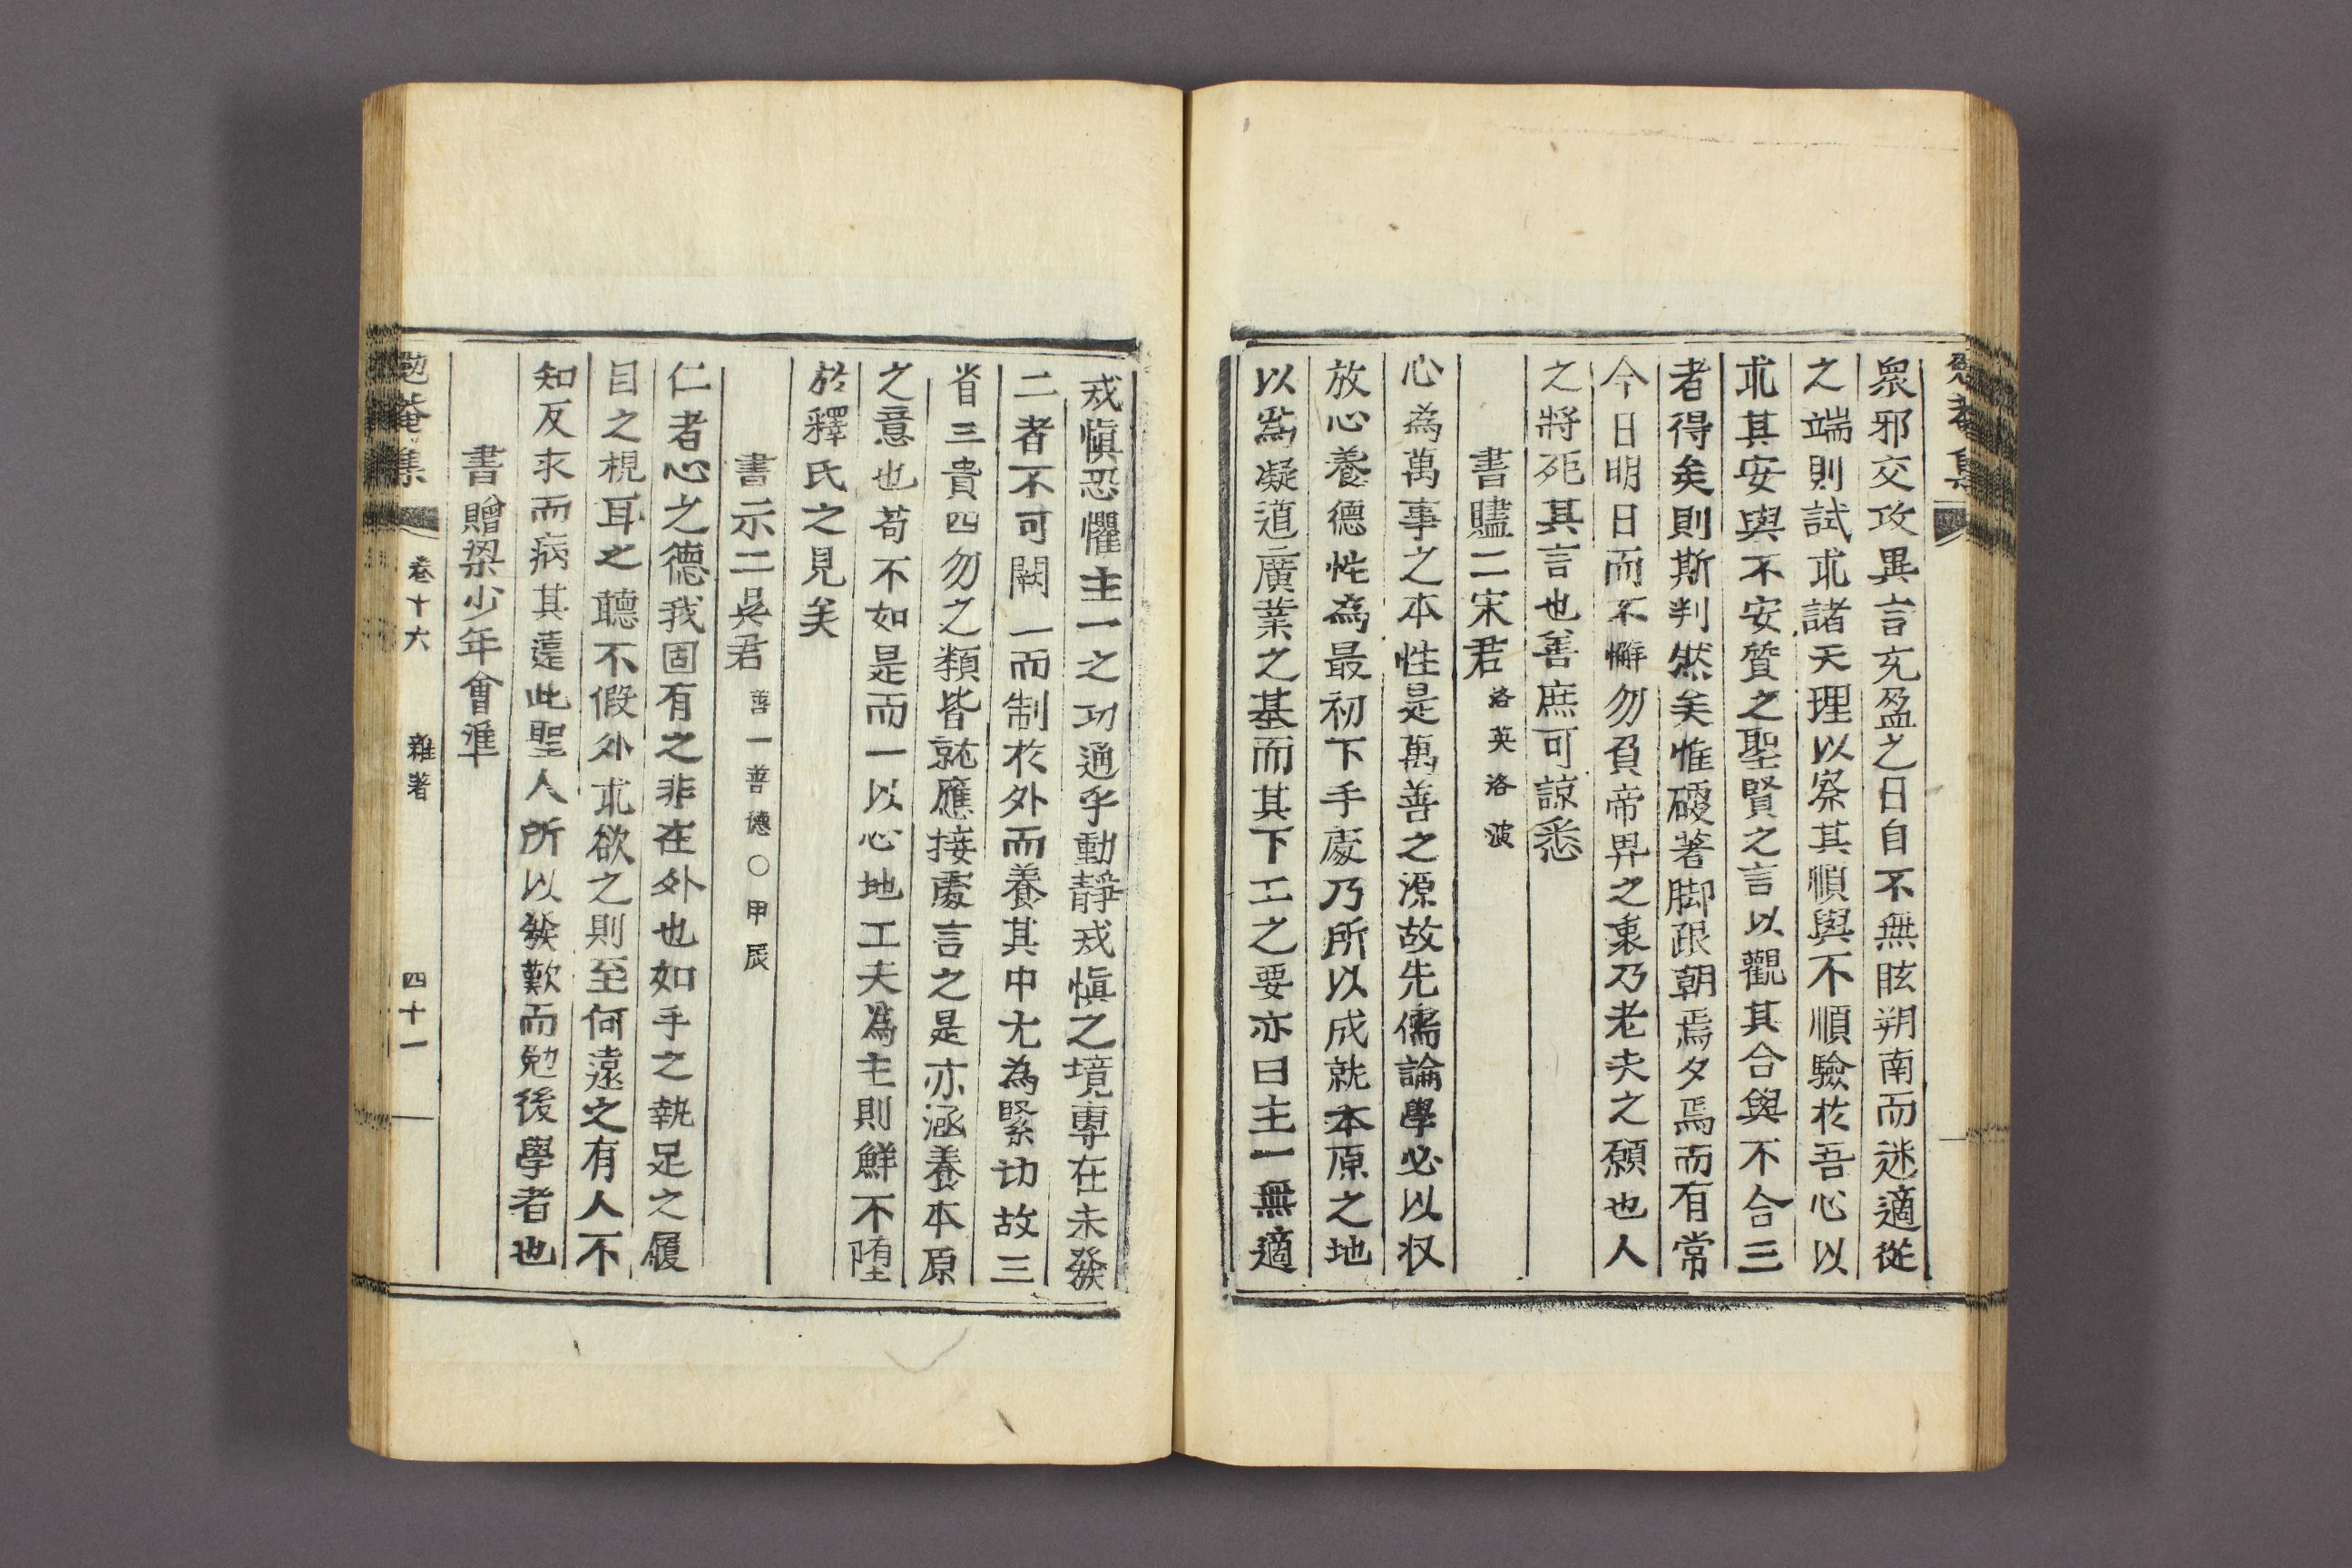 勉菴集
衆邪交攻異言充盈之日自不無眩朔南而迷適從
之端則試求諸天理以察其順與不順驗於吾心以
求其安與不安質之聖賢之言以觀其合與不合三
者得矣則斯判然矣惟硬著脚跟朝焉夕焉而有常
今日明日而不懈勿負帝畀之衷乃老夫之願也人
之將死其言也善庶可諒悉
書贐二宋君 洛英洛波
心為萬事之本性是萬善之源故先儒論學必以收
放心養德性為最初下手處乃所以成就本原之地
以為凝道廣業之基而其下工之要亦曰主一無適
戒愼恐懼主一之功通乎動靜戒愼之境專在未發
二者不可闕一而制於外而養其中尤為緊切故三
省三貴四勿之類皆就應接處言之是亦涵養本原
之意也苟不如是而一以心地工夫爲主則鮮不陏
於釋氏之見矣
書示二吳君 善一善德○甲辰
仁者心之德我固有之非在外也如手之執足之履
目之視耳之聽不假外求欲之則至何遠之有人不
知反求而病其遠此聖人所以發歎而勉後學者也
書贈梁少年會準
勉菴集 卷十六 雜著 四十一